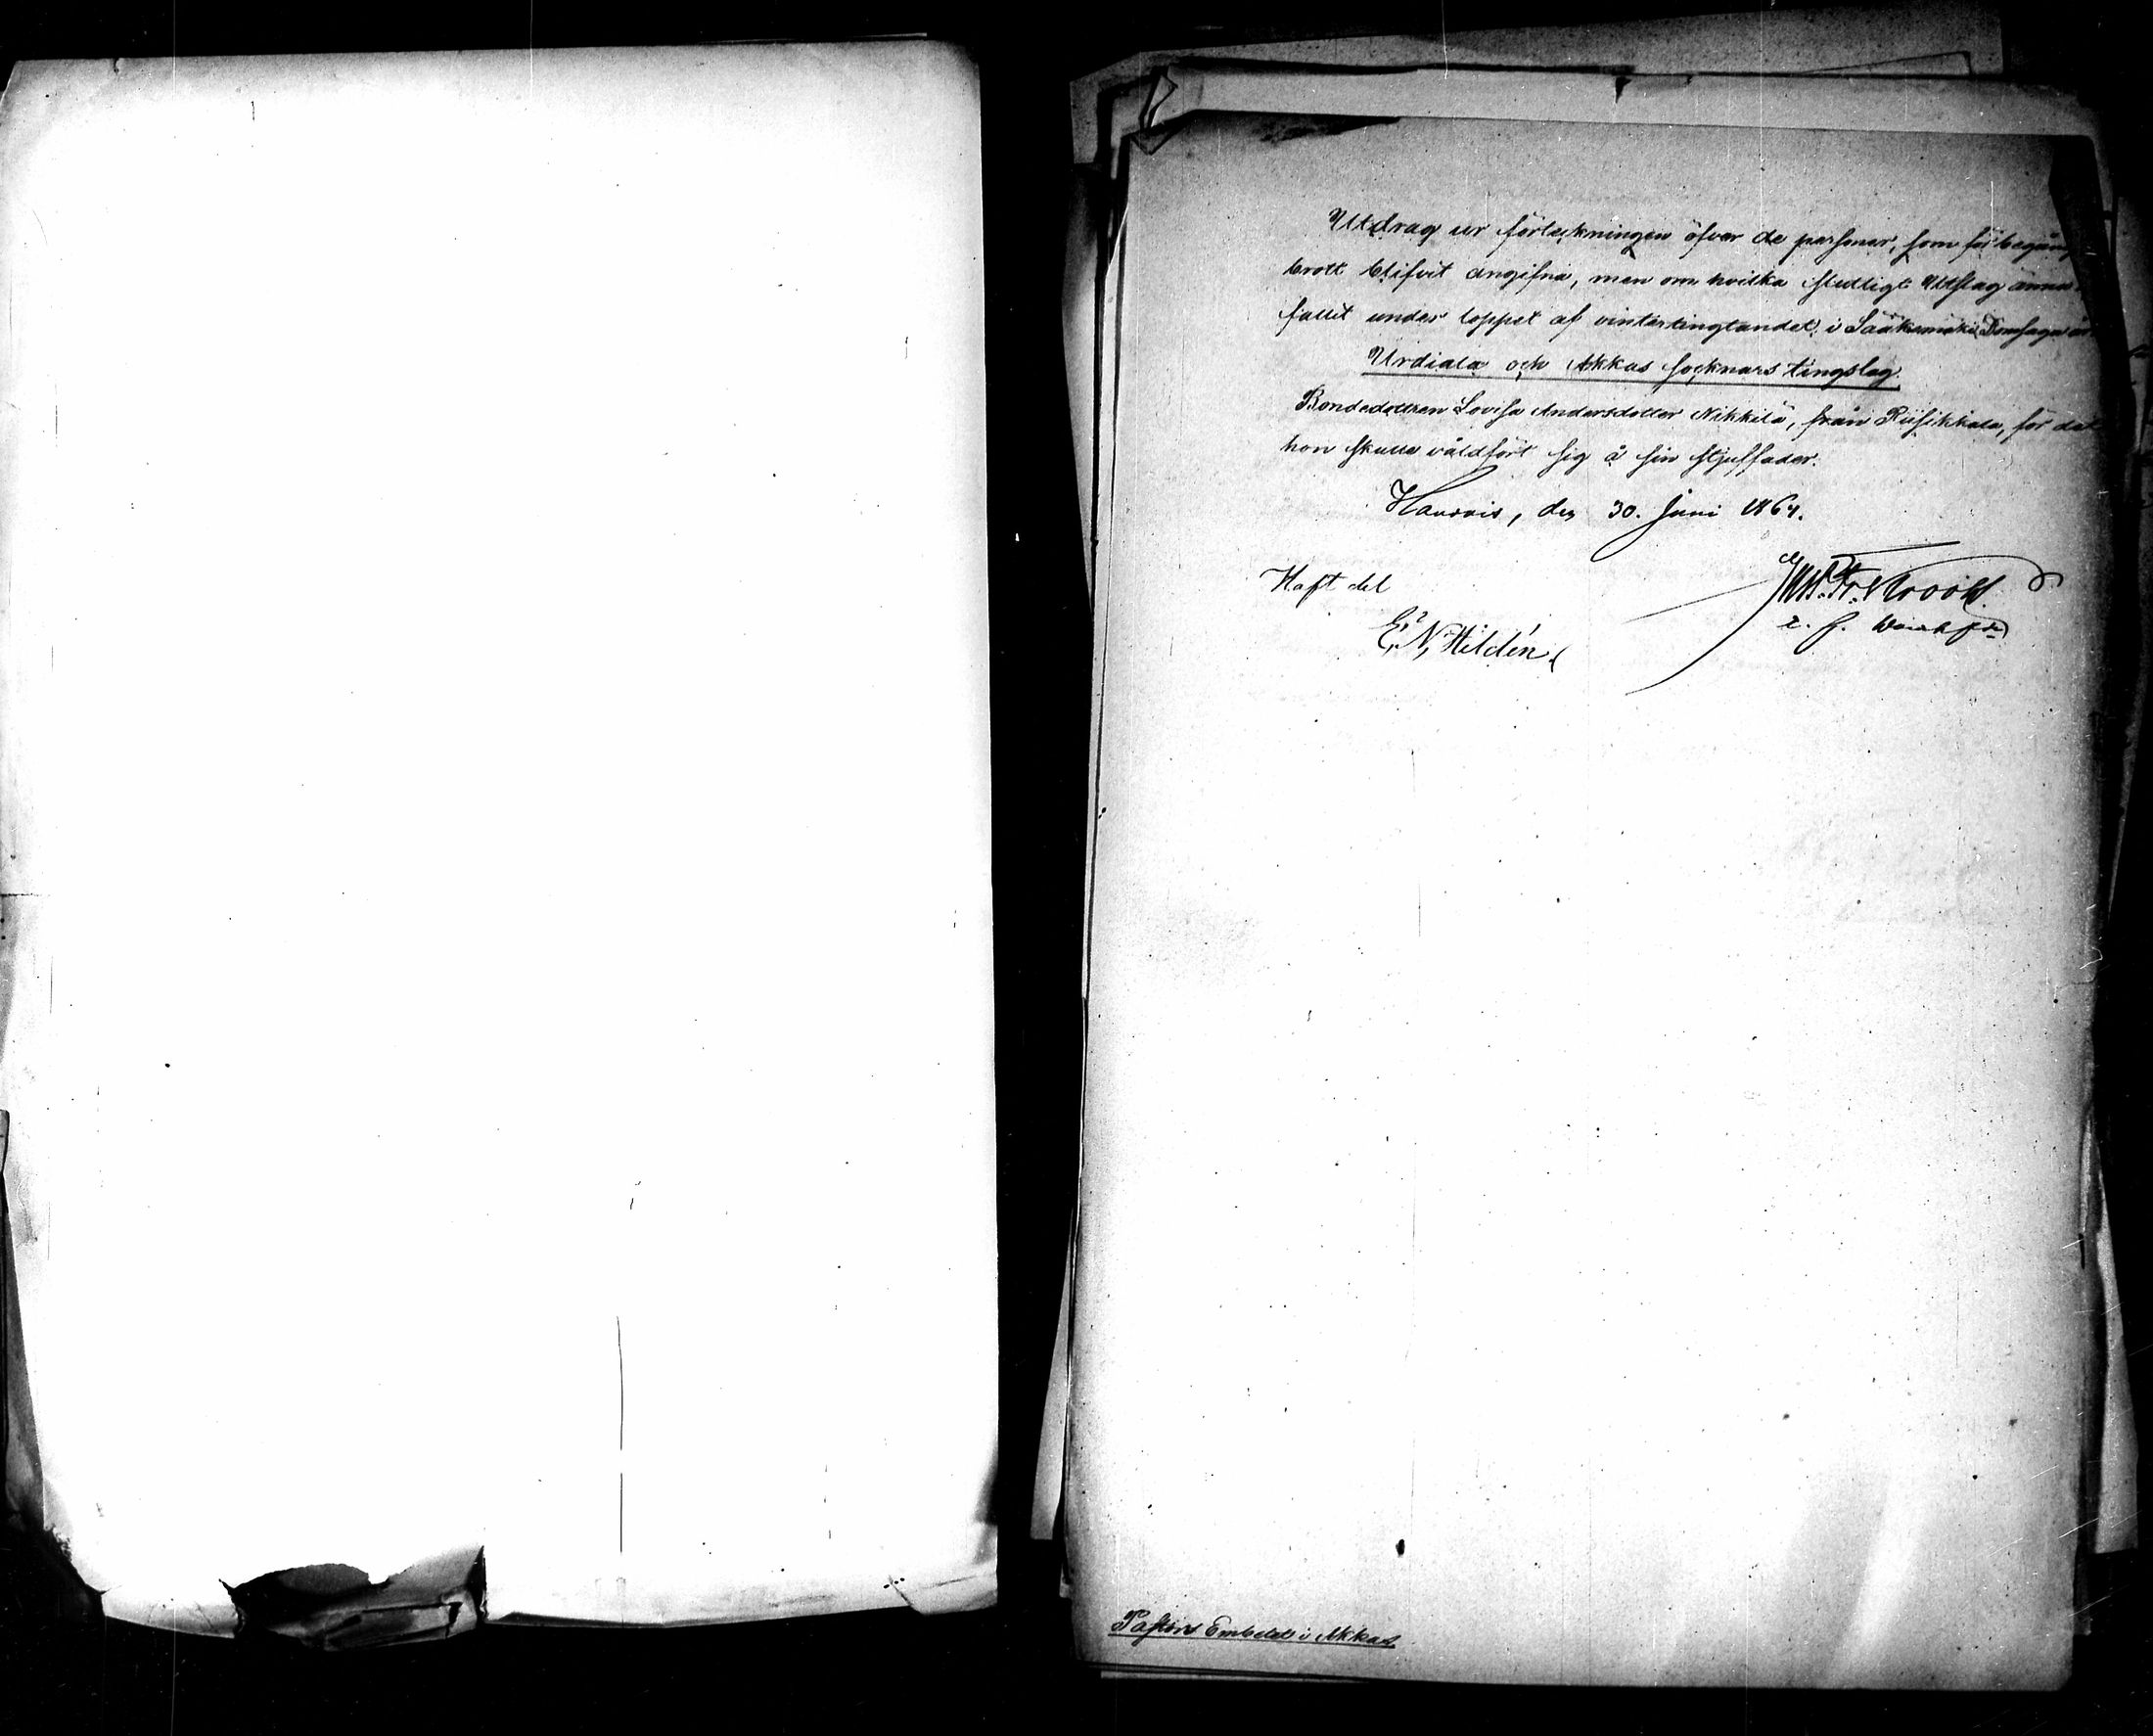 Utdrag ur förteckningen öfver de personer, som för begång
brott blifvit angifna, men om hvilka slutligt Utslag ännu
fallit under loppet af vintertingtandet i Sääksmäki Domsaga
Urdiala och Akkas socknars tingslag.
Bondedottren Lovisa Andersdotter Nikkilä, från Riisikkala, för det
hon skulle våldfört sig å sin stjuffader.
den 30. Juni 1864.
Haft del
E, N, Hildén
Pastors Embetet i Akkas